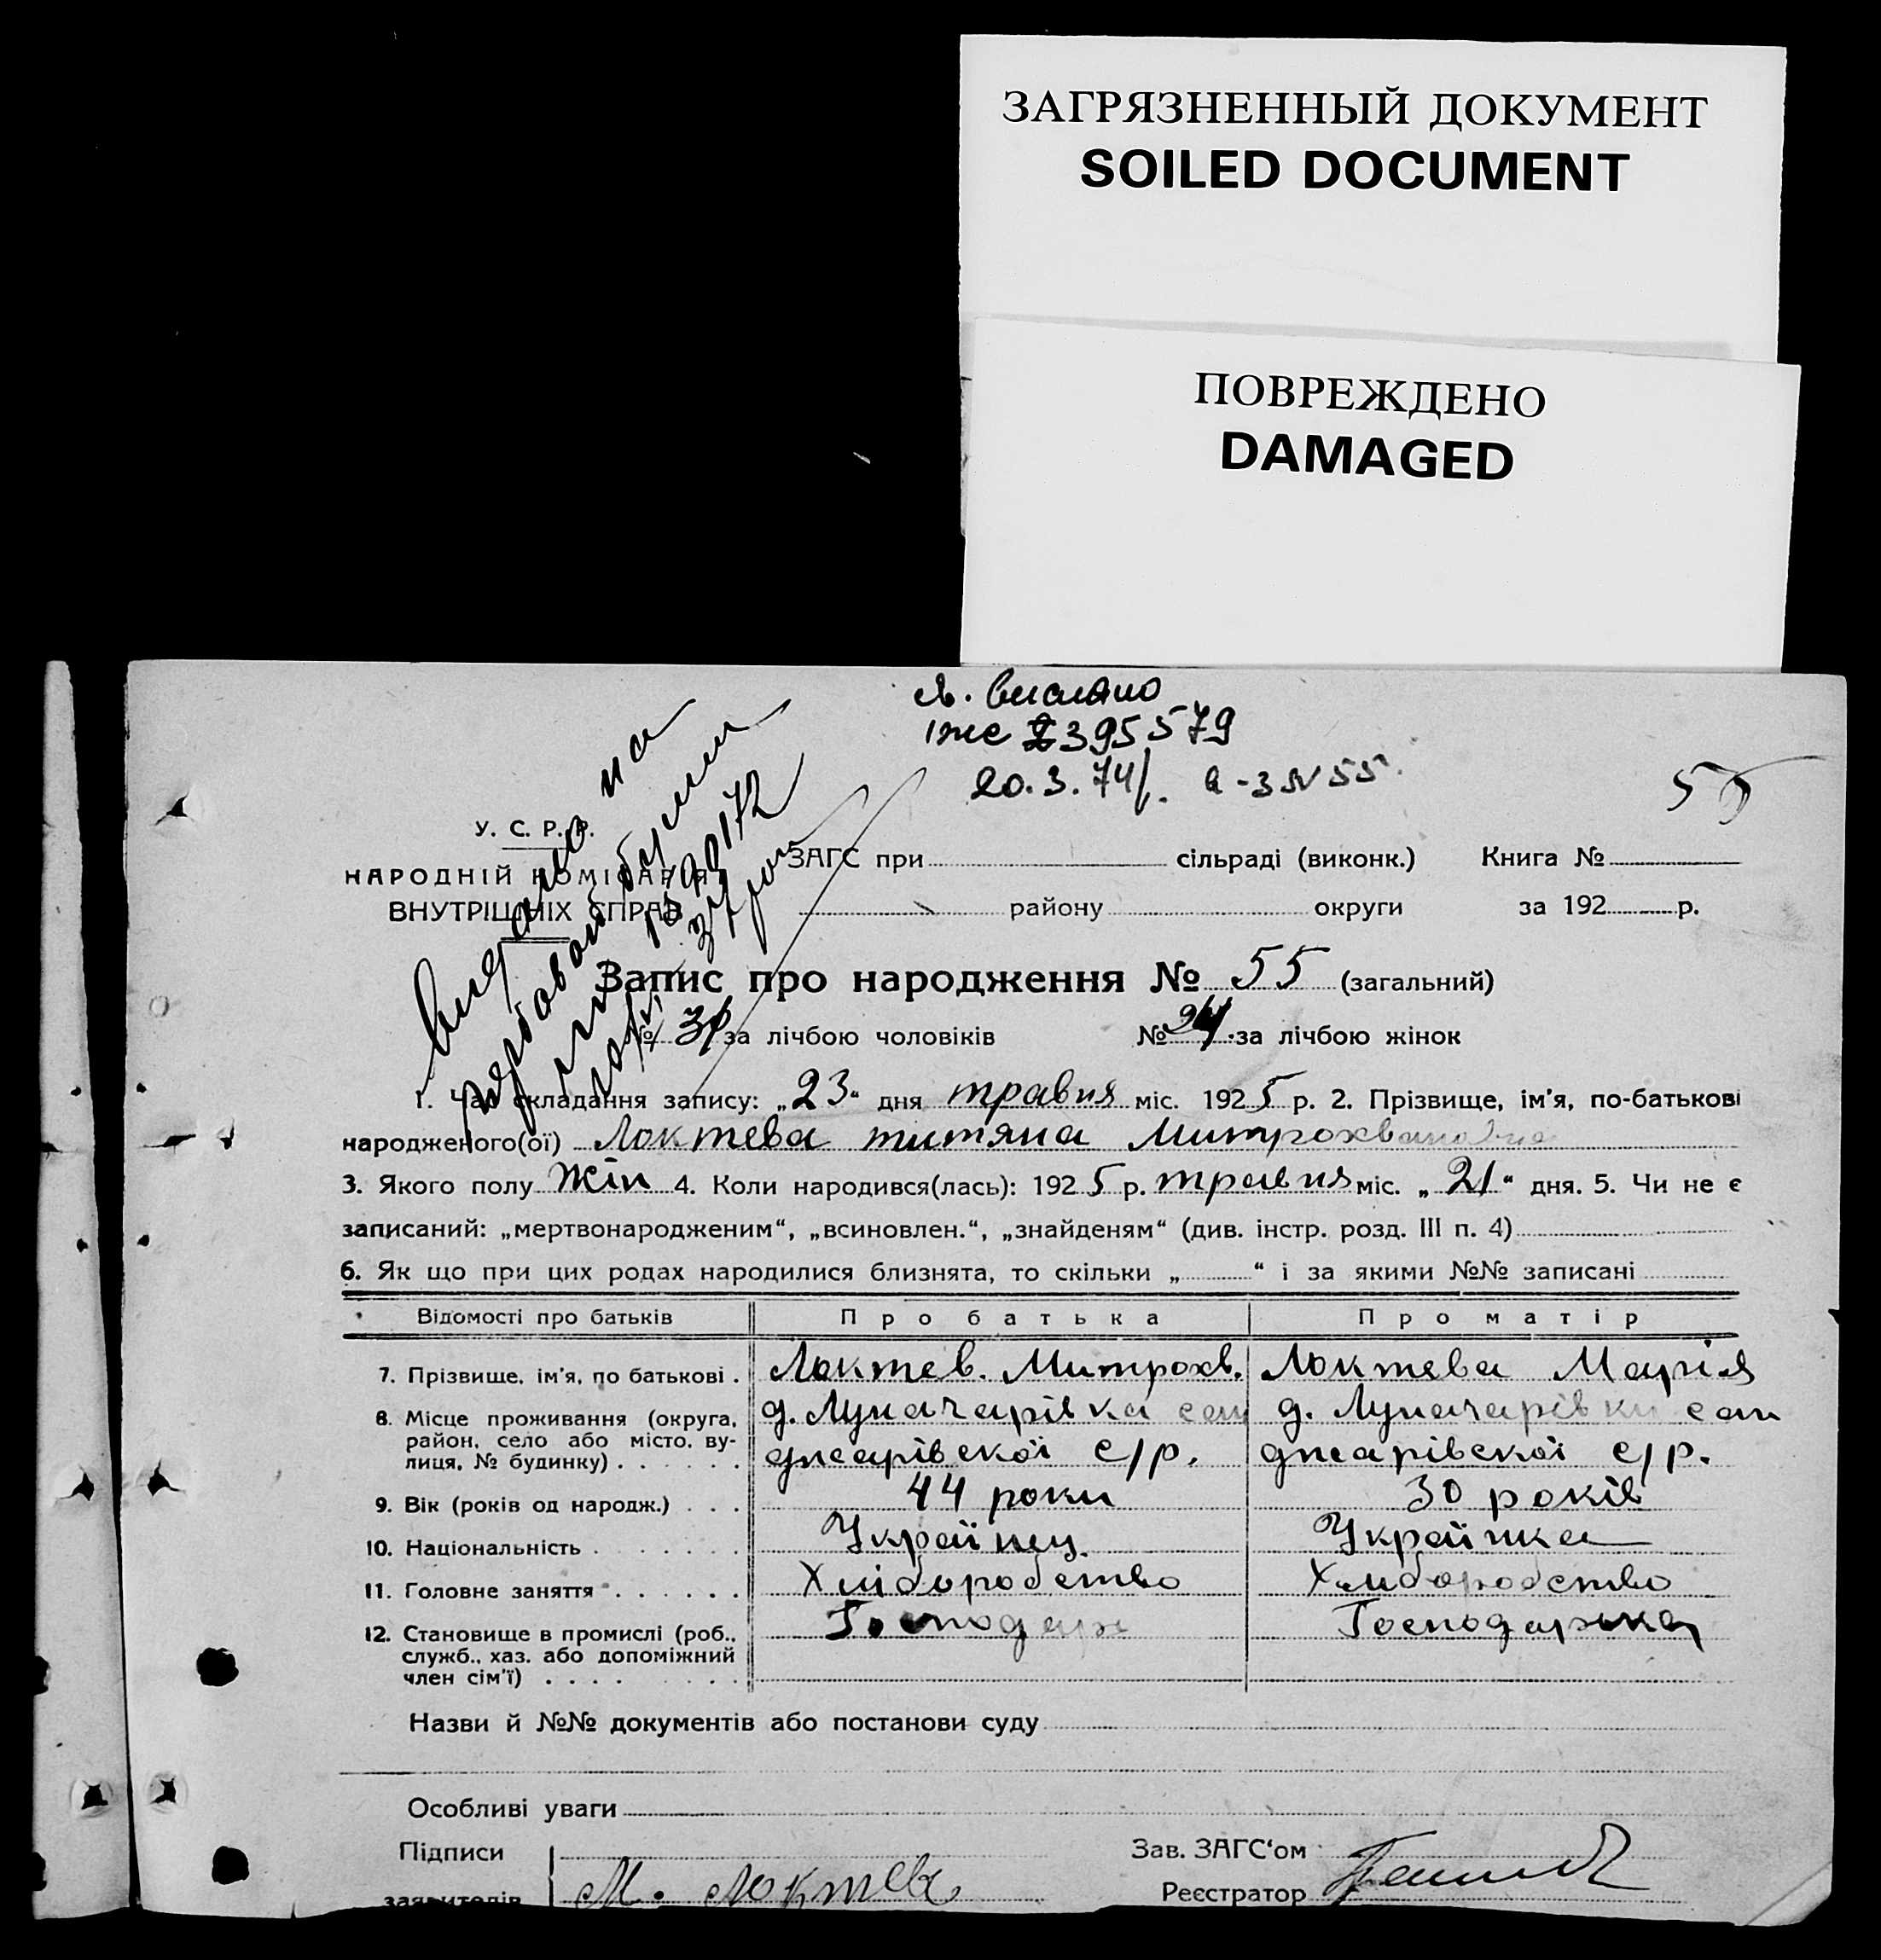 ЗАГРЯЗНЕННЫЙ ДОКУМЕНТ
SOILED DOCUMENT
ПОВРЕЖДЕНО
DAMAGED
395579
20.3.74
55
У. С. Р. Р.
НАРОДНІЙ КОМІСАРІЯТ
ВНУТРІШНІХ СПРАВ
ЗАГС при сільраді (виконк.) Книга №
району округи за 192 р.
Запис про народження № 55 (загальний)
№ за лічбою чоловіків № 24 за лічбою жінок
1. Час складання запису: „23“ дня травня міс. 1925 р. 2. Прізвище, ім'я, по-батькові
народженого(ої) Локтева титяна
3. Якого полу Жін 4. Коли народився(лась): 1925 р. травня міс. „21“ дня. 5. Чи не є
записаний: „мертвонародженим“, „всиновлен.“, „знайденям“ (див. інстр. розд. III п. 4)
6. Як що при цих родах народилися близнята, то скільки „ “ і за якими №№ записані
Відомості про батьків Про батька Про матір
7. Прізвище, ім'я, по батькові . Локтев. Митрохв. Локтева Марія
8. Місце проживання (округа, д. Луначарівка д. Луначарівки
район, село або місто, ву-
лиця, № будинку) . . . . . . с/р. с/р.
9. Вік (років од народж.) . . . 44 роки 30 років
10. Національність . . . . . . . Українец Украінка
11. Головне заняття . . . . . . Хліборобство Хлиборобство
12. Становище в промислі (роб., Господарь Господарька
служб., хаз. або допоміжний
член сім'ї) . . . .
Назви й №№ документів або постанови суду
Особливі уваги
Підписи Зав. ЗАГС'ом
заявителів М. Локтев Реєстратор